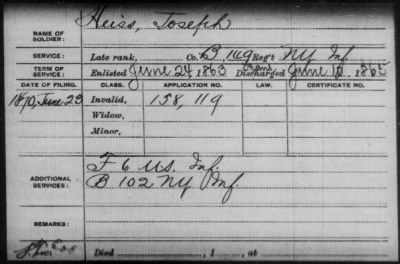 NAME OF SOLDIER: Heiss, Joseph
SERVICE: Late rank, Co. B, 149 Reg't NY Inf.
TERM OF SERVICE: Enlisted June 24, 1863 Discharged June 12, 1865
DATE OF FILING. CLASS. APPLICATION NO. LAW. CERTIFICATE NO.
1870, June 23 Invalid, 158,119
Widow,
Minor,
ADDITIONAL SERVICES: F 6 U.S. Inf.
B 102 NY Inf.
REMARKS:
Died , 1 , at